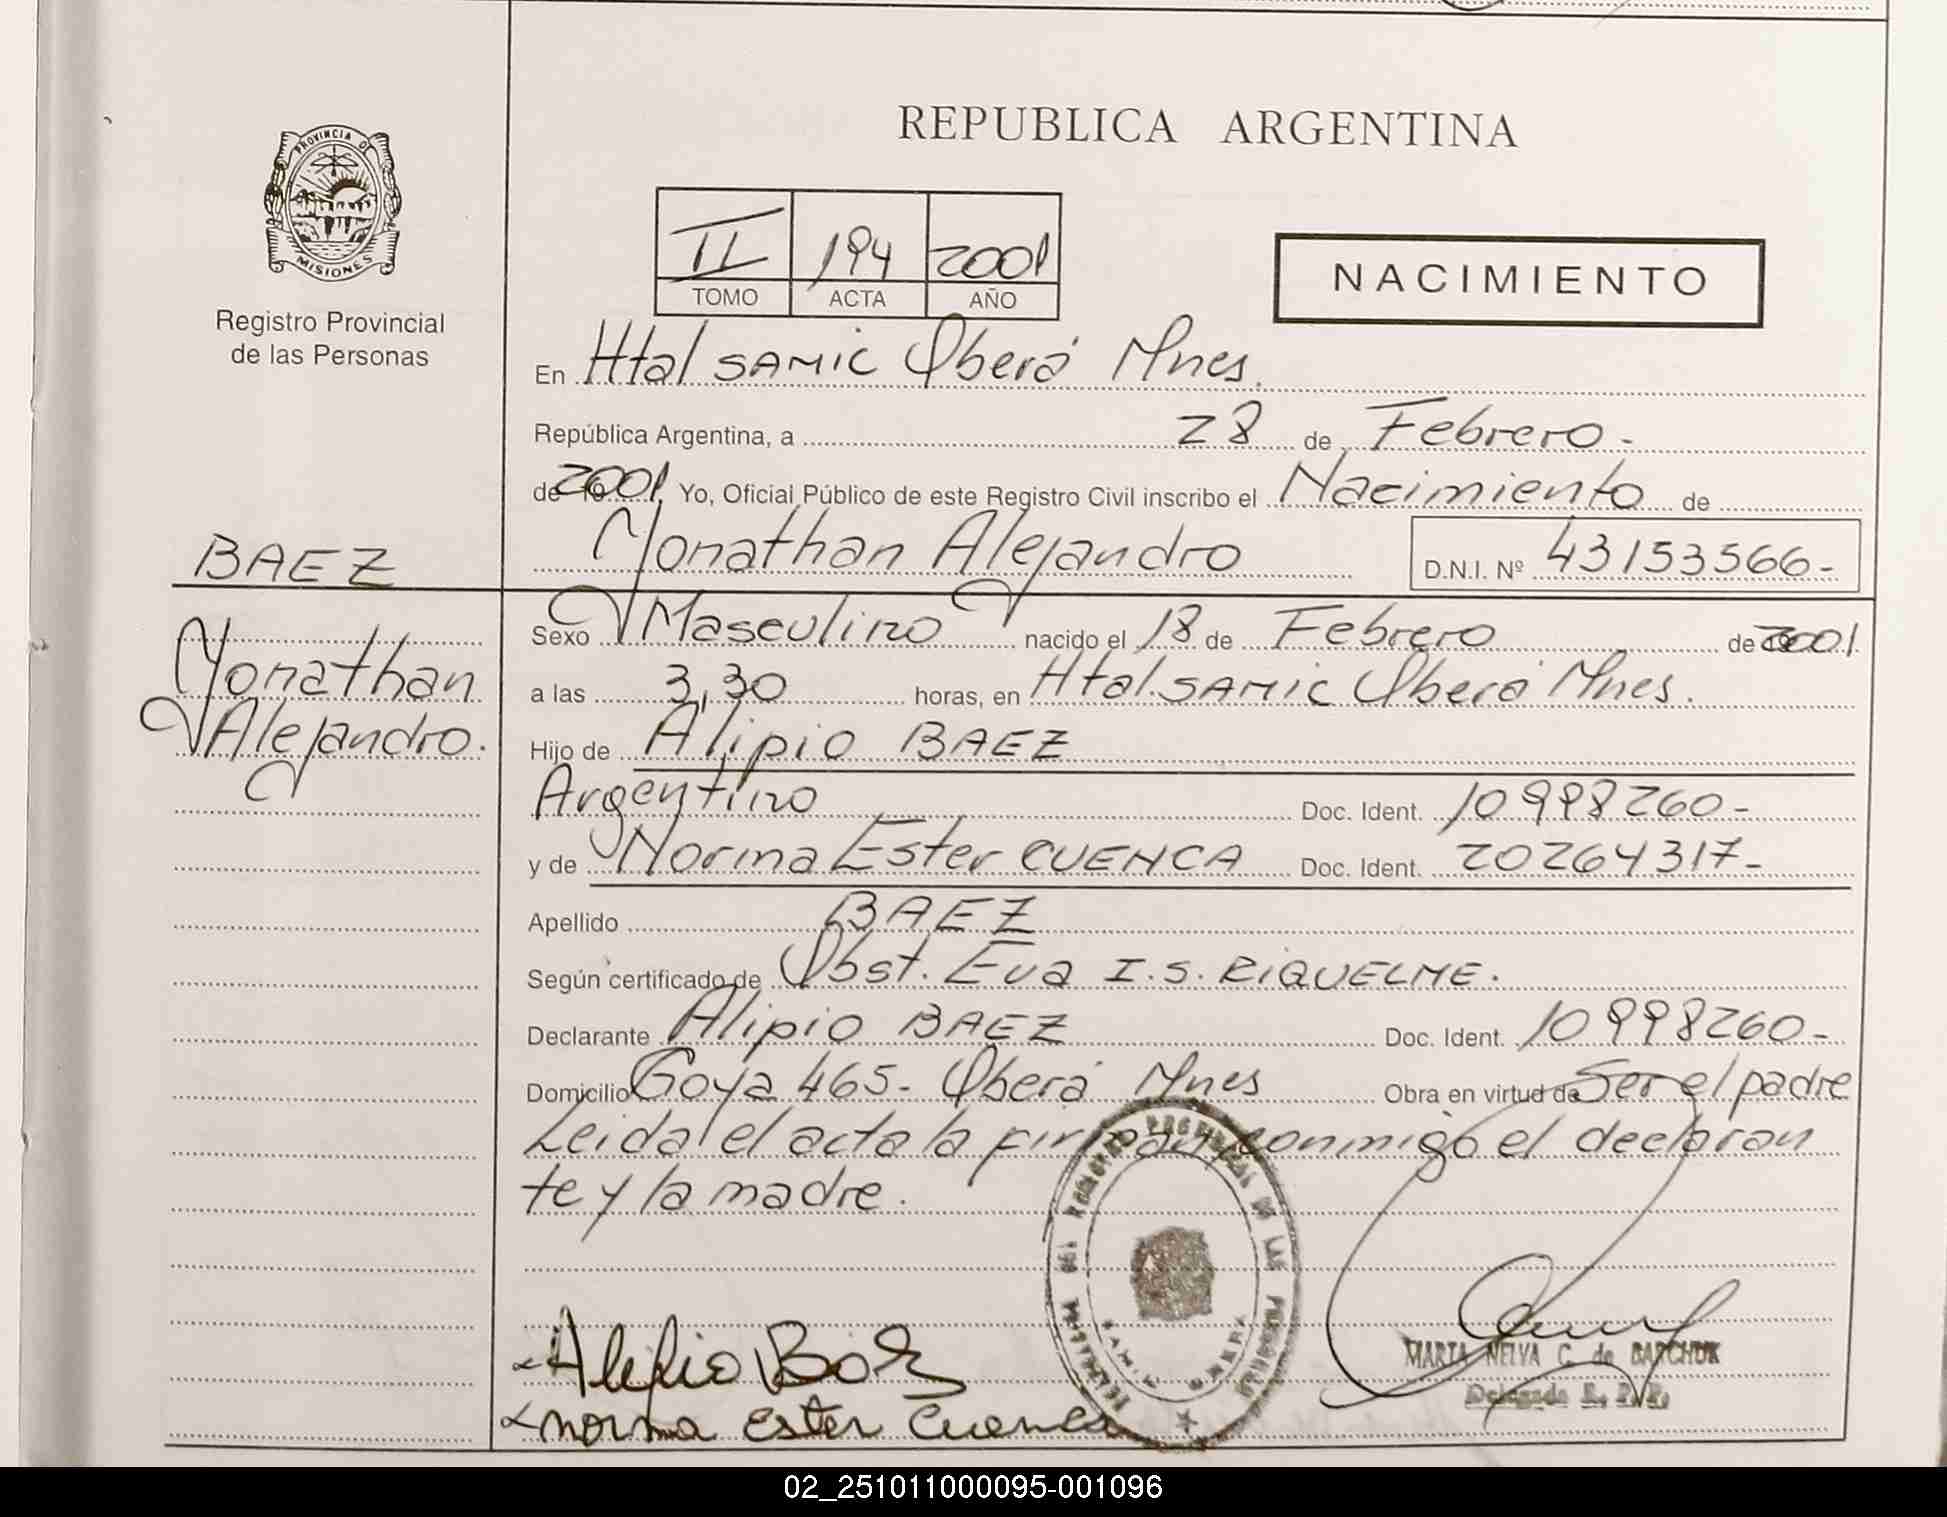 REPUBLICA ARGENTINA
PROVINCIA DE
MISIONES
Registro Provincial
de las Personas
II 194 2001
TOMO ACTA AÑO
NACIMIENTO
En Htal SAMIC Oberá Mnes.
República Argentina, a 28 de Febrero.-
de 2001 Yo, Oficial Público de este Registro Civil inscribo el Nacimiento de
Yonathan Alejandro D.N.I. Nº 43153566-
BAEZ
Yonathan
Alejandro.
Sexo Masculino nacido el 18 de Febrero de 2001.
a las 3,30 horas, en Htal. SAMIC Oberá Mnes.
Hijo de Alipio BAEZ
Argentino Doc. Ident. 10998260-
y de Norma Ester CUENCA Doc. Ident. 20264317-
Apellido BAEZ
Según certificado de Obst. Eva I.S. RIQUELME.
Declarante Alipio BAEZ Doc. Ident. 10998260-
Domicilio Goya 465- Oberá Mnes Obra en virtud de Ser el padre
Leida el acta la firman conmigo el declaran
te y la madre.
REGISTRO PROVINCIAL DE LAS PERSONAS
MARTA NELVA C. de BARCHUK
Delegada R. P. P.
Norma Ester Cuenca
02_251011000095-001096